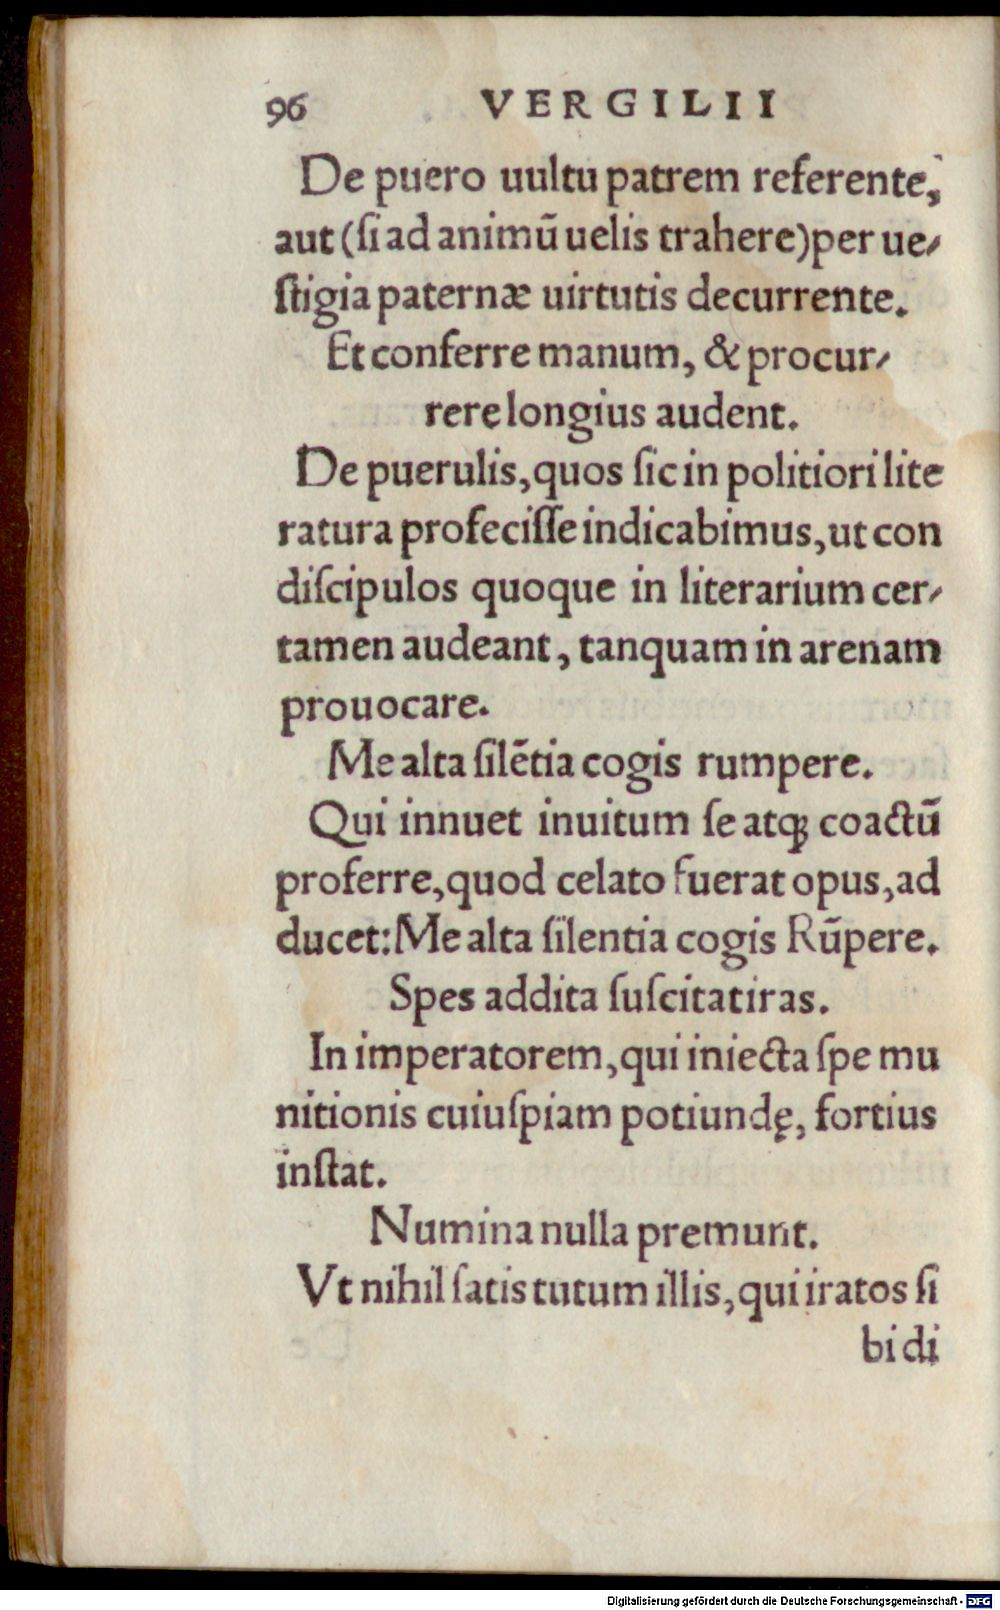 96 VERGILII
De puero uultu patrem referente,
aut (ſi ad animū uelis trahere) per ue-
ſtigia paternæ uirtutis decurrente.
Et conferre manum, & procur-
rere longius audent.
De puerulis, quos ſic in politiori lite
ratura profeciſſe indicabimus, ut con
diſcipulos quoque in literarium cer-
tamen audeant, tanquam in arenam
prouocare.
Me alta ſilētia cogis rumpere.
Qui innuet inuitum ſe atq; coactū
proferre, quod celato fuerat opus, ad
ducet: Me alta ſilentia cogis Rūpere.
Spes addita ſuſcitat iras.
In imperatorem, qui iniecta ſpe mu
nitionis cuiuſpiam potiundę, fortius
inſtat.
Numina nulla premunt.
Vt nihil ſatis tutum illis, qui iratos ſi
bi di
Digitalisierung gefördert durch die Deutsche Forschungsgemeinschaft - DFG